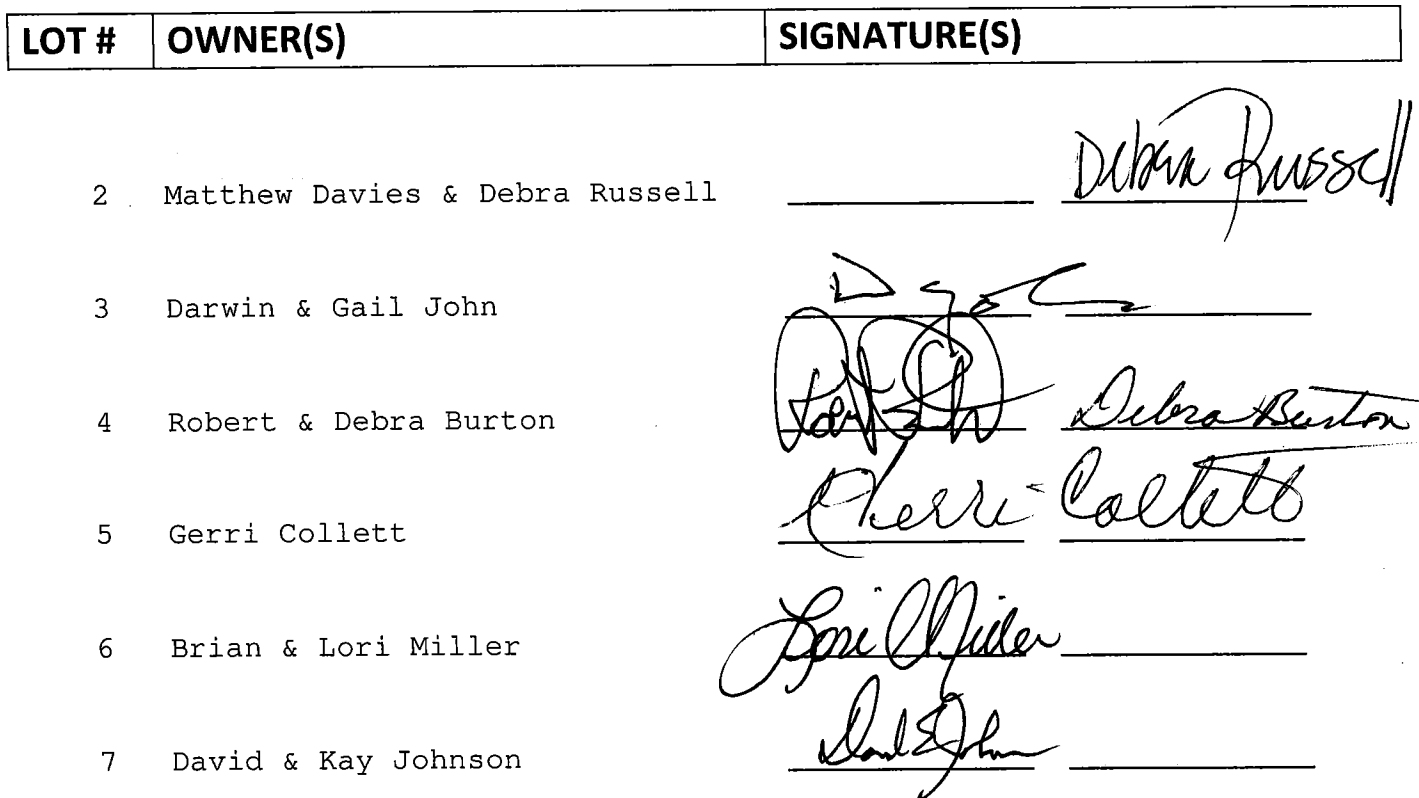 LOT # OWNER(S) SIGNATURE(S)
2 Matthew Davies & Debra Russell Debra Russell
3 Darwin & Gail John
4 Robert & Debra Burton Debra Burton
5 Gerri Collett Gerri Collett
6 Brian & Lori Miller Lori Miller
7 David & Kay Johnson